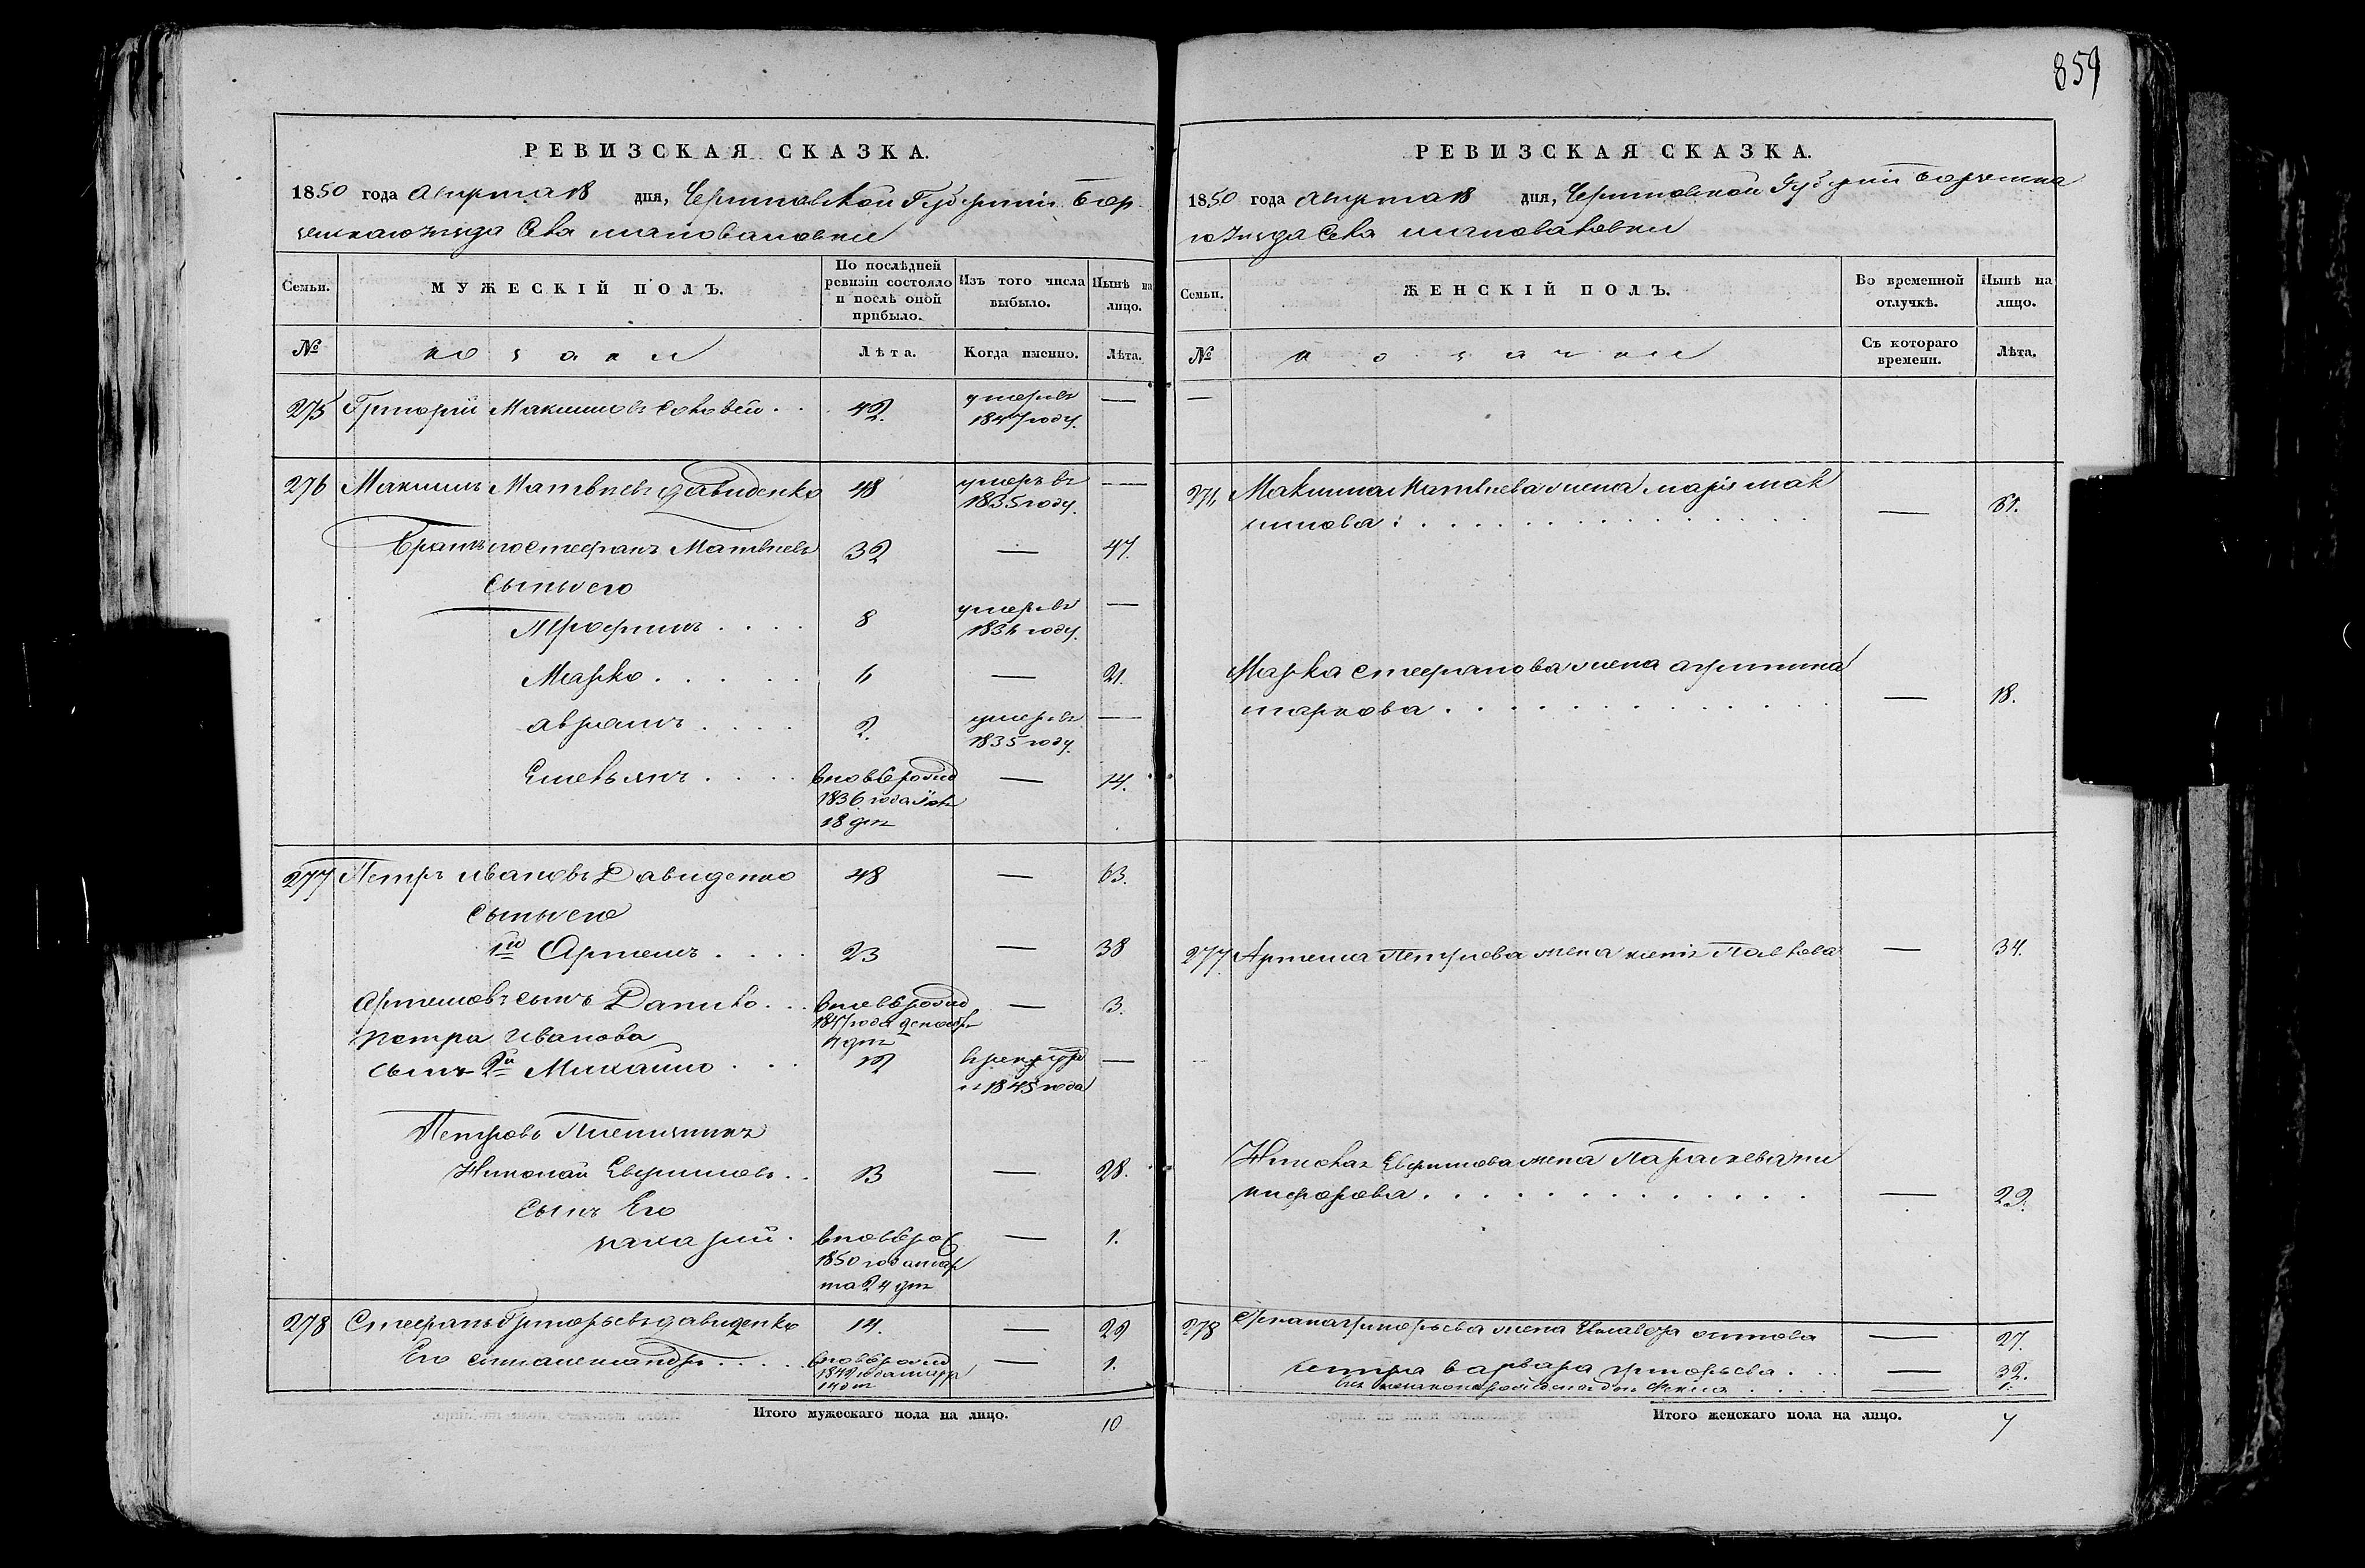 859
РЕВИЗСКАЯ СКАЗКА.
1850 года августа 18 дня, Черниговской Губернiи Бор
села шаповаловки
Семьи.
МУЖЕСКIЙ ПОЛЪ.
По послѣдней ревизiи состояло и послѣ оной прибыло.
Изъ того числа выбыло.
Нынѣ на лицо.
№
козаки
Лѣта.
Когда именно.
Лѣта.
275 Григорiй Максимовъ Соловей . . 42. умеръ въ —
1847 году.
276 Максимъ Матвѣевъ давиденко 48 умеръ въ —
1835 году.
Братъ его стефанъ Матвѣевъ 32 — 47.
сыны его
Трофимъ . . . . 8 умеръ въ —
1836 году.
Марко . . . . . 6 — 21.
аврамъ . . . . 2. умеръ въ —
1835 году.
Емельянъ . . . . вновь рожд — 14.
1836 года
18 дня
277 Петръ ивановъ Давиденко 48 — 63.
сыны его
1й Артемъ . . . . 23 — 38
Артемовъ сынъ Данило . . . вновь рожд — 3.
1847 года декабр
4 дня
петра Иванова
сынъ 2й Михайло . . . 12 в рекруты —
1845 года
Петровъ Племянникъ
Николай Евфимовъ . . 13 — 28.
сынъ Его
захарiй . вновь рож — 1.
1850 года мар
та 24 дня
278 Стефанъ Григорьевъ давиденко 14. — 29
Его сынъ александръ . . . . . вновь рожд — 1.
1849 года
14 дня
Итого мужескаго пола на лицо. 10
РЕВИЗСКАЯ СКАЗКА.
1850 года августа 18 дня, Черниговской Губернiи борзенска
го Уѣзда села шаповаловки
Семьи.
ЖЕНСКIЙ ПОЛЪ.
Во временной отлучкѣ.
Нынѣ на лицо.
№
козачки
Съ котораго времени.
Лѣта.
—
276 Максима Матвѣева жена марiя мак
симова : . . . . . — 61.
Марка стефанова жена агрипина
маркова . . . . . — 18.
277 Артема Петрова жена — 34.
Николая Евфимова жена Параскева ни
кифорова . . . . . — 29.
278 Стефана григорьева жена Елисавета осипова — 27.
сестра варвара григорьева . . . — 32.
— 1.
Итого женскаго пола на лицо. 7